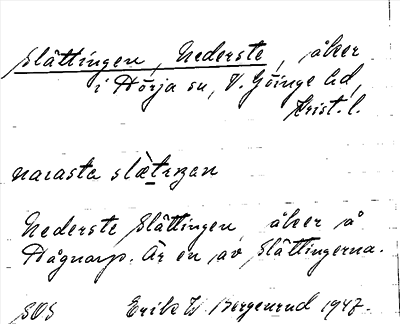 Slättingen, Nederste, åker
i Hörja sn, V. Göinge hd,
Krist. l.
narasta slætıŋan
Nederste Slättingen åker å
Hågnarp. Är en av Slättingerna.
SOS Erik W Bergenrud 1947.